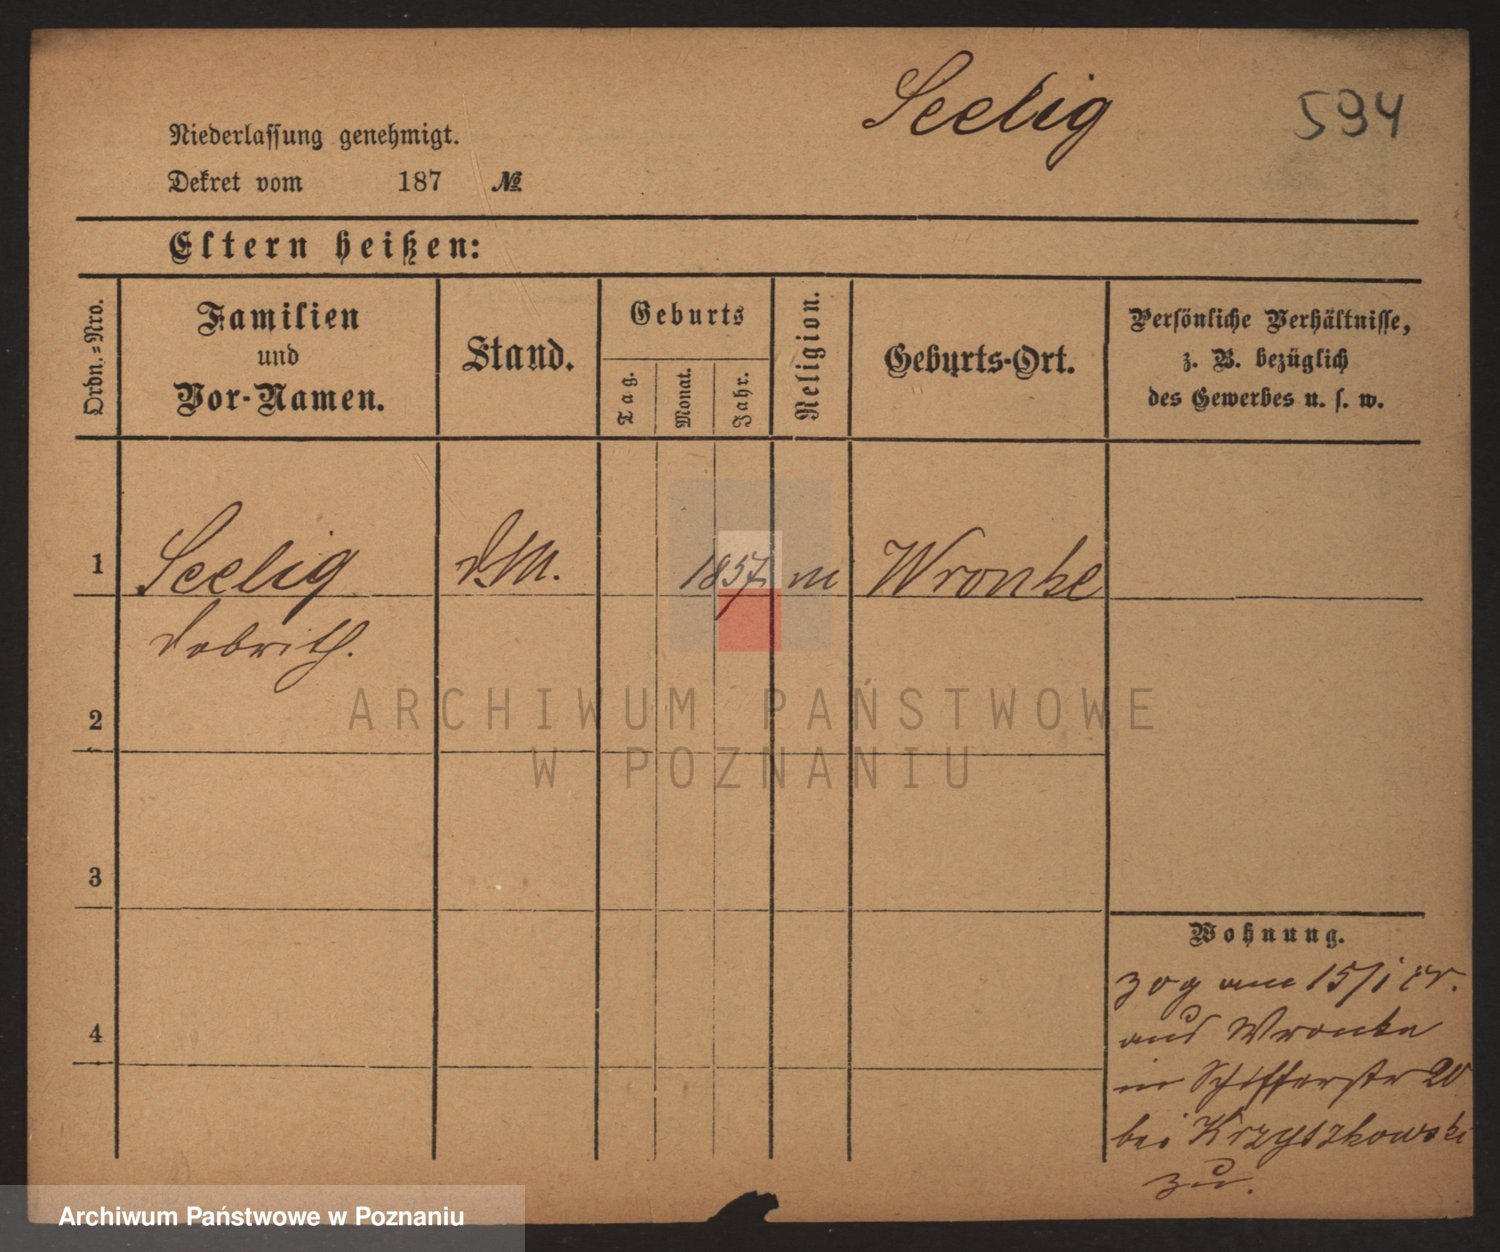 Seelig
594
Niederlassung genehmigt.
Dekret vom 187 №
Eltern heißen:
Ordn.=Nro.
Familien
und
Vor-Namen.
Stand.
Geburts
Tag.
Monat.
Jahr.
Religion.
Geburts-Ort.
Persönliche Verhältnisse,
z. B. bezüglich
des Gewerbes u. s. w.
1
Seelig
1857
m
Wronke
2
3
4
Wohnung.
zog am 15/1 cr.
aus Wronke
in Schifferstr 20
bei Krzyszkowski
zu.
ARCHIWUM PAŃSTWOWE
W POZNANIU
Archiwum Państwowe w Poznaniu